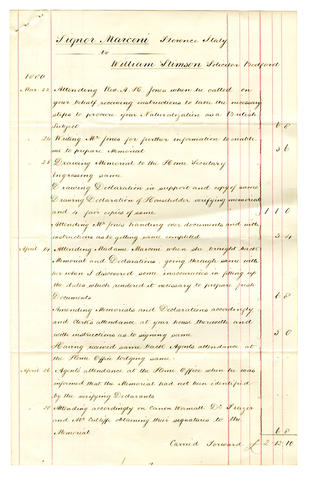 Signor Marconi Florence Italy
to
William Stimson Solicitor Bedford
Mar. 22 Attending Rev. A. H. Jones when he called on
your behalf receiving instructions to take the necessary
steps to procure your Naturalization as a British
Subject 6 8
Writing Mr Jones for further information to enable
us to prepare Memorial 3 6
Drawing Memorial to the Home Secretary
Engrossing same
Drawing Declaration in support and copy of same
Drawing Declaration of Householder verifying memorial
and 4 fair copies of same 1 1 0
Attending Mr Jones handing over documents and with
instructions as to getting same completed 3 4
April Attending Madame Marconi when she brought back
Memorial and Declarations going through same with
her when I discovered some inaccuracies in filling up
the dates which rendered it necessary to prepare fresh
Documents 6 8
Amending Memorials and Declarations accordingly
and Clerk's attendance at your house therewith and
with instructions as to signing same 5 0
Having received same back Agents attendance at
the Home Office lodging same
April 26 Agents attendance at the Home Office when he was
informed that the Memorial had not been identified
by the verifying Declarants
Attending accordingly on Canon Warnall Dr. Frazer
and Mr Cutliffe obtaining their signatures to the
Memorial 6 8
Carried Forward £ 2 13 10